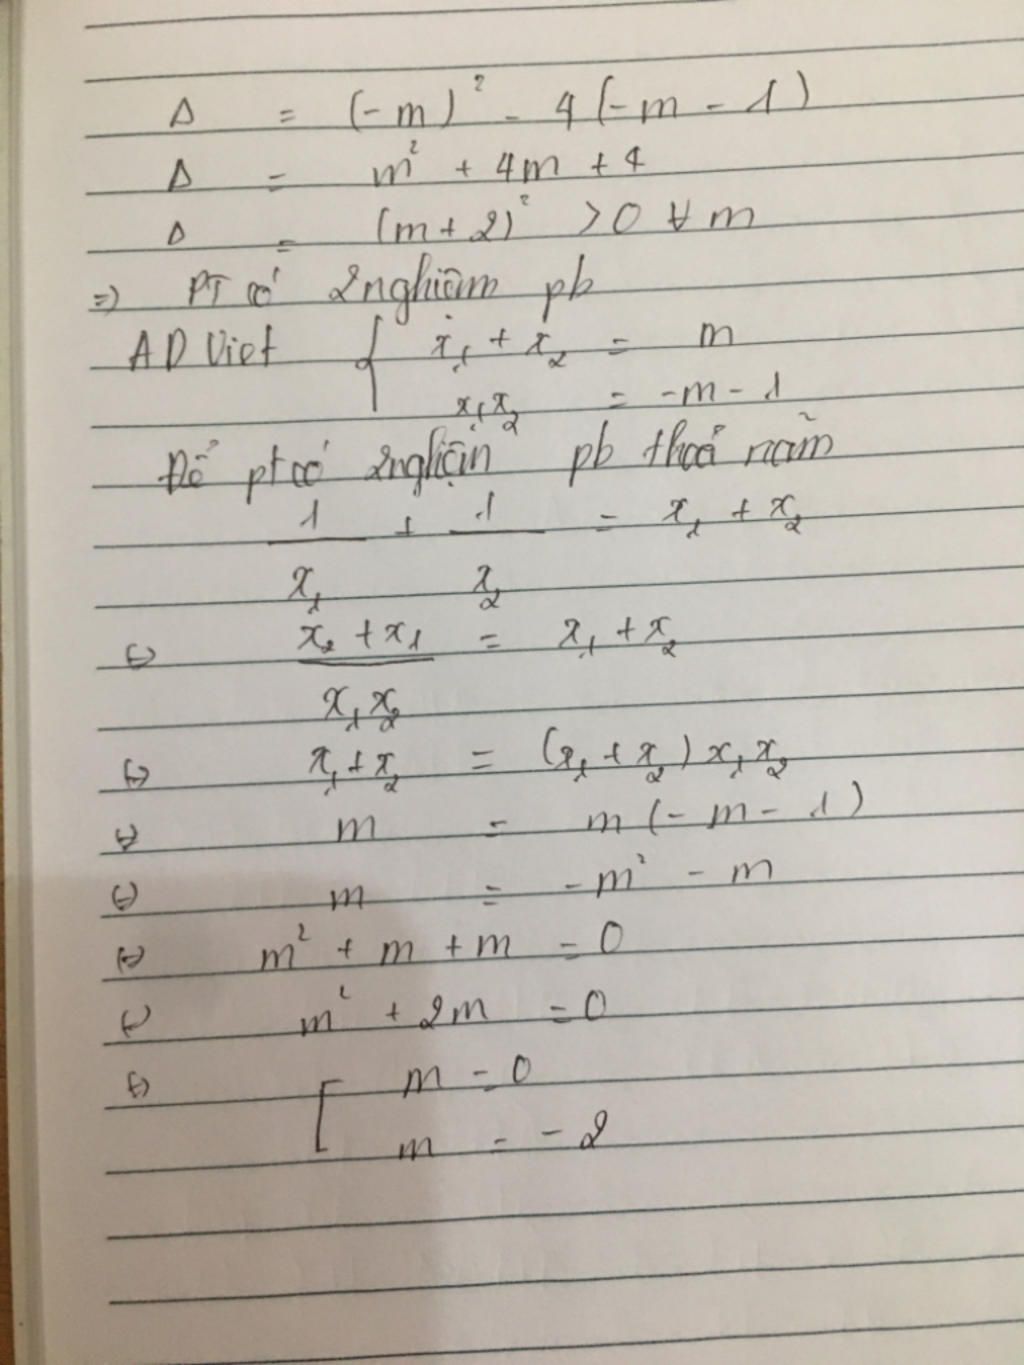 Δ = (-m)² - 4(-m - 1)
Δ = m² + 4m + 4
Δ = (m+2)² >0 ∀ m
=) PT có 2nghiệm pb
AD Viet { x₁ + x₂ = m
x₁x₂ = -m - 1
Để pt có 2nghiện pb thoả nãm
1/x₁ + 1/x₂ = x₁ + x₂
⇔ (x₂ + x₁)/(x₁x₂) = x₁ + x₂
⇔ x₁ + x₂ = (x₁ + x₂) x₁x₂
⇔ m = m (- m - 1)
⇔ m = -m² - m
⇔ m² + m + m = 0
⇔ m² + 2m = 0
⇔ [ m = 0
m = -2